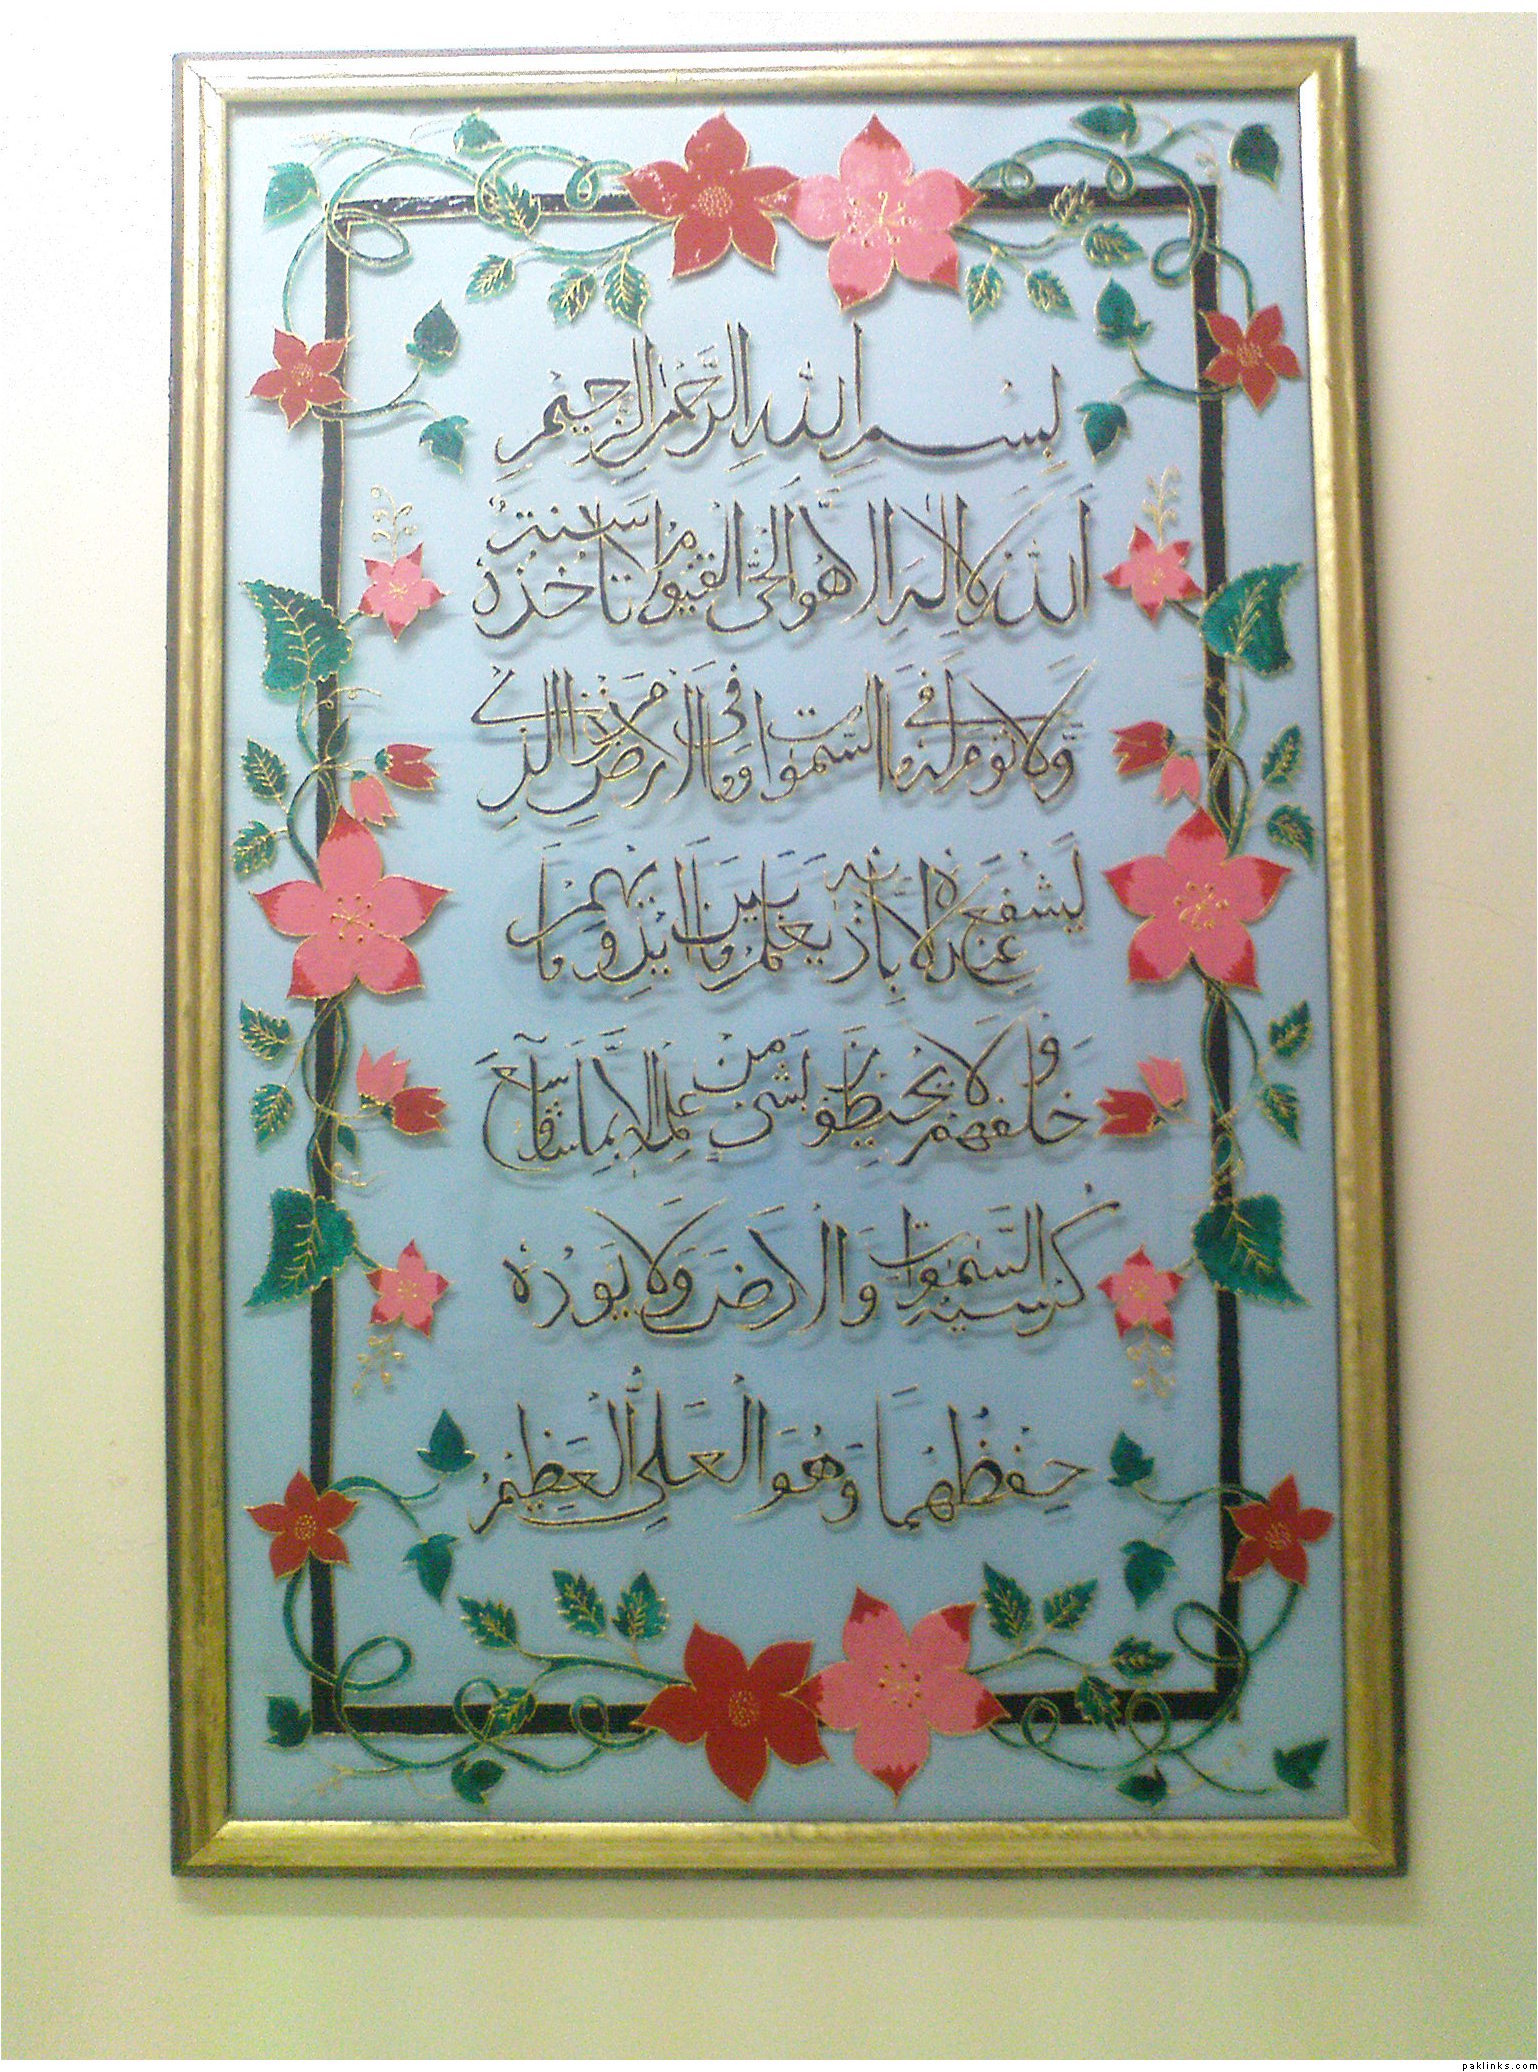 بِسْمِ اللهِ الرَّحْمٰنِ الرَّحِيْمِ
اَللهُ لَا اِلٰهَ اِلَّا هُوَ الْحَیُّ الْقَيُّوْمُ لَا تَاْخُذُهٗ سِنَةٌ
وَّلَا نَوْمٌ لَهٗ مَا فِی السَّمٰوٰتِ وَمَا فِی الْاَرْضِ مَنْ ذَا الَّذِیْ
يَشْفَعُ عِنْدَهٗ اِلَّا بِاِذْنِهٖ يَعْلَمُ مَا بَيْنَ اَيْدِيْهِمْ وَمَا
خَلْفَهُمْ وَلَا يُحِيْطُوْنَ بِشَیْءٍ مِّنْ عِلْمِهٖ اِلَّا بِمَا شَآءَ وَسِعَ
كُرْسِيُّهُ السَّمٰوٰتِ وَالْاَرْضَ وَلَا يَـُٔوْدُهٗ
حِفْظُهُمَا وَهُوَ الْعَلِیُّ الْعَظِيْمُ
paklinks.com